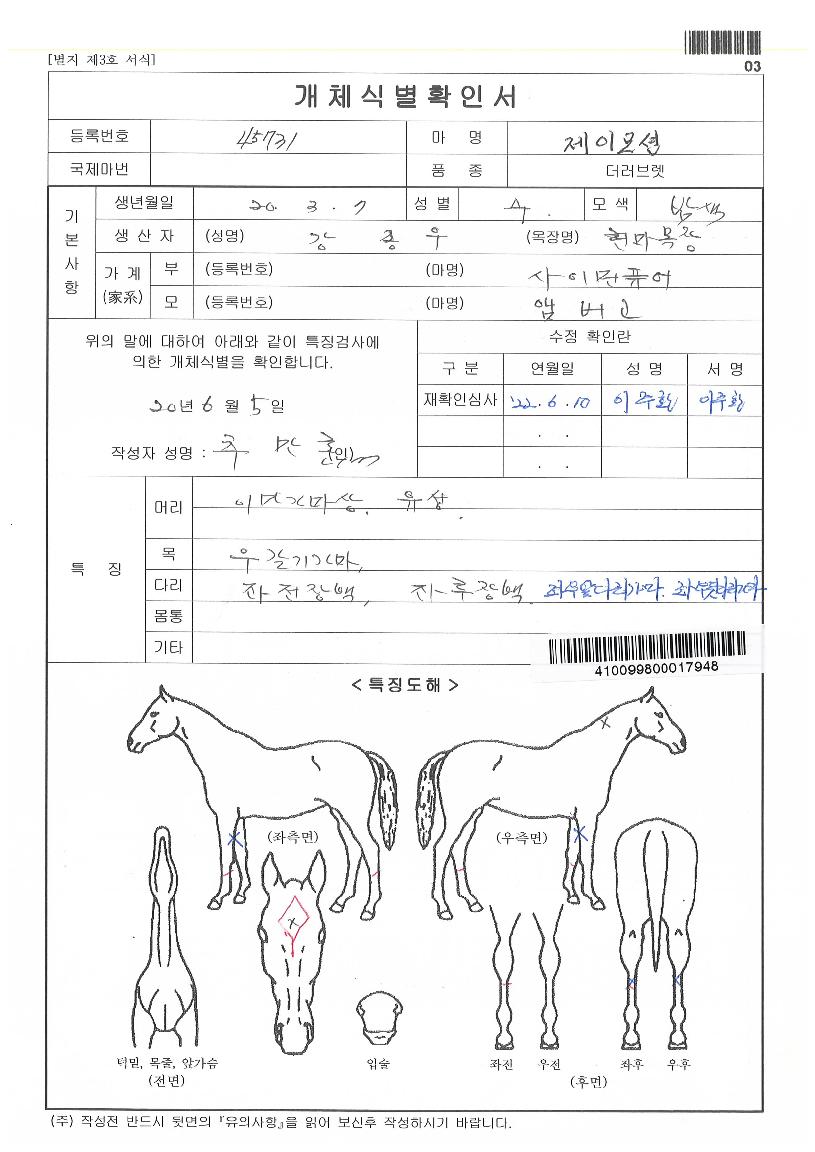 [별지 제3호 서식]
03
개체식별확인서
등록번호 45731 마 명 제이모션
국제마번 품 종 더러브렛
기본사항
생년월일 20. 3. 7 성 별 수. 모 색 밤색
생 산 자 (성명) 강 종 우 (목장명) 한마목장
가 계 (家系) 부 (등록번호) (마명) 사이먼퓨어
모 (등록번호) (마명) 앰버고
위의 말에 대하여 아래와 같이 특징검사에
의한 개체식별을 확인합니다.
20년 6 월 5 일
작성자 성명 : (인)
수정 확인란
구 분 연월일 성 명 서 명
재확인심사 '22. 6. 10 이주환 이주환
. .
. .
특 징
머리 이마가마상. 유성.
목 우갈기가마,
다리 좌전장백, 좌후장백. 좌우앞다리가마. 좌우뒷다리가마
몸통
기타
410099800017948
< 특징도해 >
(좌측면) (우측면)
턱밑, 목줄, 앞가슴
(전면)
입술
좌전 우전 좌후 우후
(후면)
(주) 작성전 반드시 뒷면의 『유의사항』을 읽어 보신후 작성하시기 바랍니다.